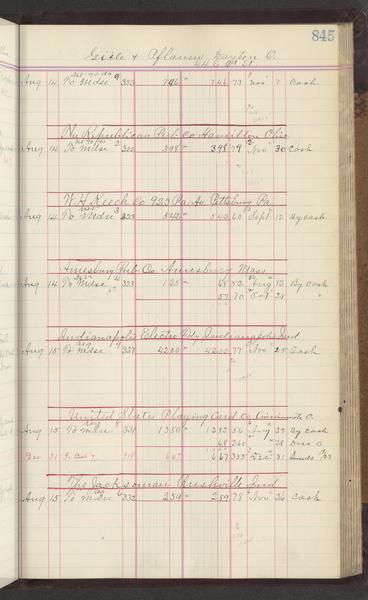 845
Dayton O.
Aug 14 To Mdse 323 746 746 73 Nov 7 Cash
The Republican Pub Co Hamilton Ohio
Aug 14 To Mdse 2 322 398 398 79 Nov 30 Cash
W. H. Keech Co 923 Pa Av Pittsburg Pa
Aug 14 To Mdse 3 323 542 542 60 Sept 12 By Cash
Amesbury Pub Co Amesbury Mass
Aug 14 To Mdse 323 125 68 52 Aug 13 By Cash
57 70 Oct 28 "
Indianapolis Electro Indianapolis Ind
Aug 15 To Mdse 327 4200 4200 77 Nov 25 Cash
United States Playing Card Co Cincinnati O.
Aug 15 To Mdse 331 1350 1282 56 Aug 29 By Cash
68 260 28 Disc
Dec 31 To Bal 667 667 353 Dec 31
The Jacksonian Rushville Ind
Aug 15 To Mdse 6 332 259 259 78 Nov 26 Cash